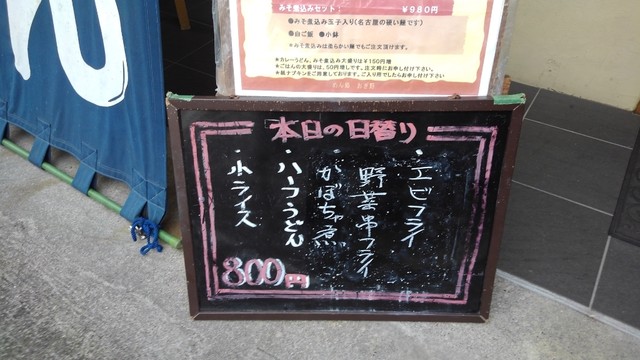 みそ煮込みセット ¥980円
●みそ煮込み玉子入り(名古屋の硬い麺です)
●白ご飯 ●小鉢
※みそ煮込みは柔らかい麺でもご注文頂けます。
※カレーうどん、みそ煮込み大盛りは¥150円増
※ごはんの大盛りは、50円増しです。注文時にお申し付け下さい。
※紙ナプキンをご用意しております。ご入用でしたらお申し付け下さい
本日の日替り
・エビフライ
野菜串フライ
かぼちゃ煮
・ハーフうどん
・小ライス
800円